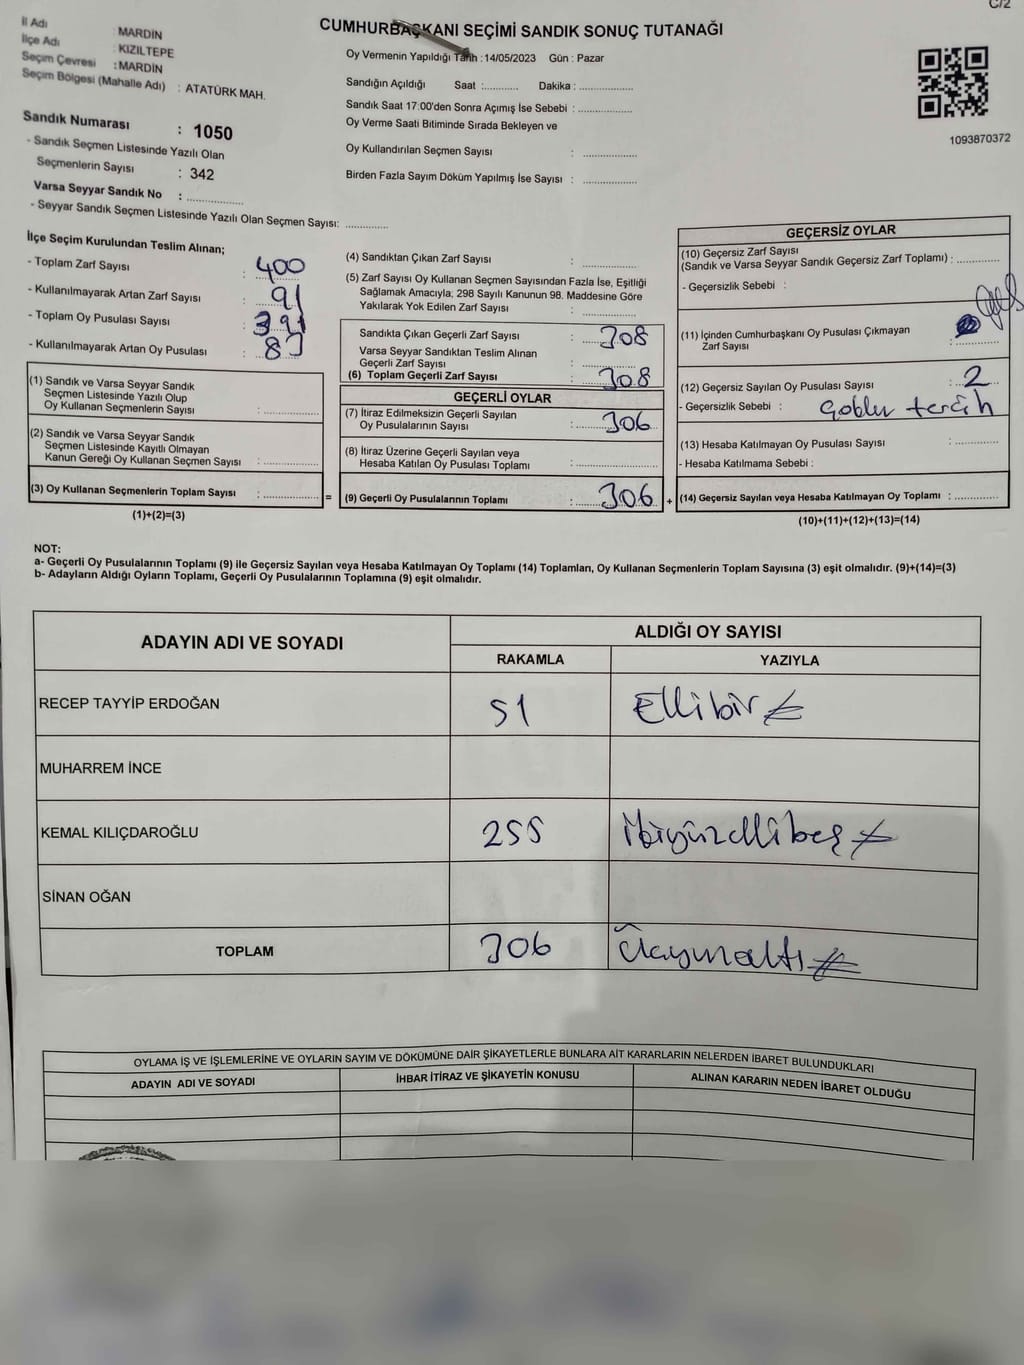 C/2
CUMHURBAŞKANI SEÇİMİ SANDIK SONUÇ TUTANAĞI
İl Adı : MARDİN
İlçe Adı : KIZILTEPE
Seçim Çevresi : MARDİN
Seçim Bölgesi (Mahalle Adı) : ATATÜRK MAH.
Sandık Numarası : 1050
- Sandık Seçmen Listesinde Yazılı Olan
Seçmenlerin Sayısı : 342
Varsa Seyyar Sandık No : ..............
- Seyyar Sandık Seçmen Listesinde Yazılı Olan Seçmen Sayısı: ..............
Oy Vermenin Yapıldığı Tarih : 14/05/2023 Gün : Pazar
Sandığın Açıldığı Saat :........... Dakika :................
Sandık Saat 17:00'den Sonra Açımış İse Sebebi : ................
Oy Verme Saati Bitiminde Sırada Bekleyen ve
Oy Kullandırılan Seçmen Sayısı : ................
Birden Fazla Sayım Döküm Yapılmış İse Sayısı : ................
1093870372
İlçe Seçim Kurulundan Teslim Alınan;
- Toplam Zarf Sayısı : 400
- Kullanılmayarak Artan Zarf Sayısı : 91
- Toplam Oy Pusulası Sayısı : 391
- Kullanılmayarak Artan Oy Pusulası :
(1) Sandık ve Varsa Seyyar Sandık
Seçmen Listesinde Yazılı Olup
Oy Kullanan Seçmenlerin Sayısı : ................
(2) Sandık ve Varsa Seyyar Sandık
Seçmen Listesinde Kayıtlı Olmayan
Kanun Gereği Oy Kullanan Seçmen Sayısı : ................
(3) Oy Kullanan Seçmenlerin Toplam Sayısı : ................ =
(1)+(2)=(3)
(4) Sandıktan Çıkan Zarf Sayısı : ................
(5) Zarf Sayısı Oy Kullanan Seçmen Sayısından Fazla İse, Eşitliği
Sağlamak Amacıyla, 298 Sayılı Kanunun 98. Maddesine Göre
Yakılarak Yok Edilen Zarf Sayısı : ................
Sandıkta Çıkan Geçerli Zarf Sayısı : 308
Varsa Seyyar Sandıktan Teslim Alınan
Geçerli Zarf Sayısı : ................
(6) Toplam Geçerli Zarf Sayısı : 308
GEÇERLİ OYLAR
(7) İtiraz Edilmeksizin Geçerli Sayılan
Oy Pusulalarının Sayısı : 306
(8) İtiraz Üzerine Geçerli Sayılan veya
Hesaba Katılan Oy Pusulası Toplamı : ................
(9) Geçerli Oy Pusulalarının Toplamı : 306 +
GEÇERSİZ OYLAR
(10) Geçersiz Zarf Sayısı
(Sandık ve Varsa Seyyar Sandık Geçersiz Zarf Toplamı) : ............
- Geçersizlik Sebebi :
(11) İçinden Cumhurbaşkanı Oy Pusulası Çıkmayan
Zarf Sayısı : ............
(12) Geçersiz Sayılan Oy Pusulası Sayısı : 2
- Geçersizlik Sebebi : tercih
(13) Hesaba Katılmayan Oy Pusulası Sayısı : ............
- Hesaba Katılmama Sebebi :
(14) Geçersiz Sayılan veya Hesaba Katılmayan Oy Toplamı : ............
(10)+(11)+(12)+(13)=(14)
NOT:
a- Geçerli Oy Pusulalarının Toplamı (9) ile Geçersiz Sayılan veya Hesaba Katılmayan Oy Toplamı (14) Toplamları, Oy Kullanan Seçmenlerin Toplam Sayısına (3) eşit olmalıdır. (9)+(14)=(3)
b- Adayların Aldığı Oyların Toplamı, Geçerli Oy Pusulalarının Toplamına (9) eşit olmalıdır.
ADAYIN ADI VE SOYADI ALDIĞI OY SAYISI
RAKAMLA YAZIYLA
RECEP TAYYİP ERDOĞAN 51 Ellibir
MUHARREM İNCE
KEMAL KILIÇDAROĞLU 255 ikiyüzellibeş
SİNAN OĞAN
TOPLAM 306
OYLAMA İŞ VE İŞLEMLERİNE VE OYLARIN SAYIM VE DÖKÜMÜNE DAİR ŞİKAYETLERLE BUNLARA AİT KARARLARIN NELERDEN İBARET BULUNDUKLARI
ADAYIN ADI VE SOYADI İHBAR İTİRAZ VE ŞİKAYETİN KONUSU ALINAN KARARIN NEDEN İBARET OLDUĞU